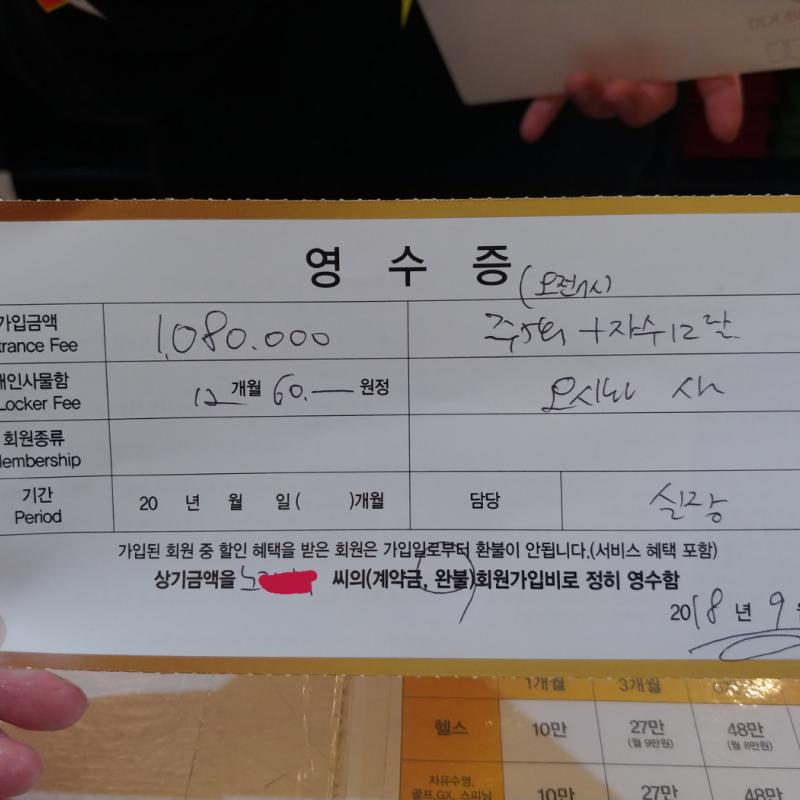 영 수 증
(오전7시)
가입금액 1,080.000 주5회 +자수12달
trance Fee
개인사물함 12 개월 60.— 원정
Locker Fee
회원종류
embership
기간 20 년 월 일( )개월 담당 실장
Period
가입된 회원 중 할인 혜택을 받은 회원은 가입일로부터 환불이 안됩니다.(서비스 혜택 포함)
상기금액을 노 씨의(계약금, 완불)회원가입비로 정히 영수함
2018년 9
1개월 3개월
헬스 10만 27만 48만
(월 9만원) (월 8만원)
자유수영,
골프,GX, 스피닝 10만 27만 48만